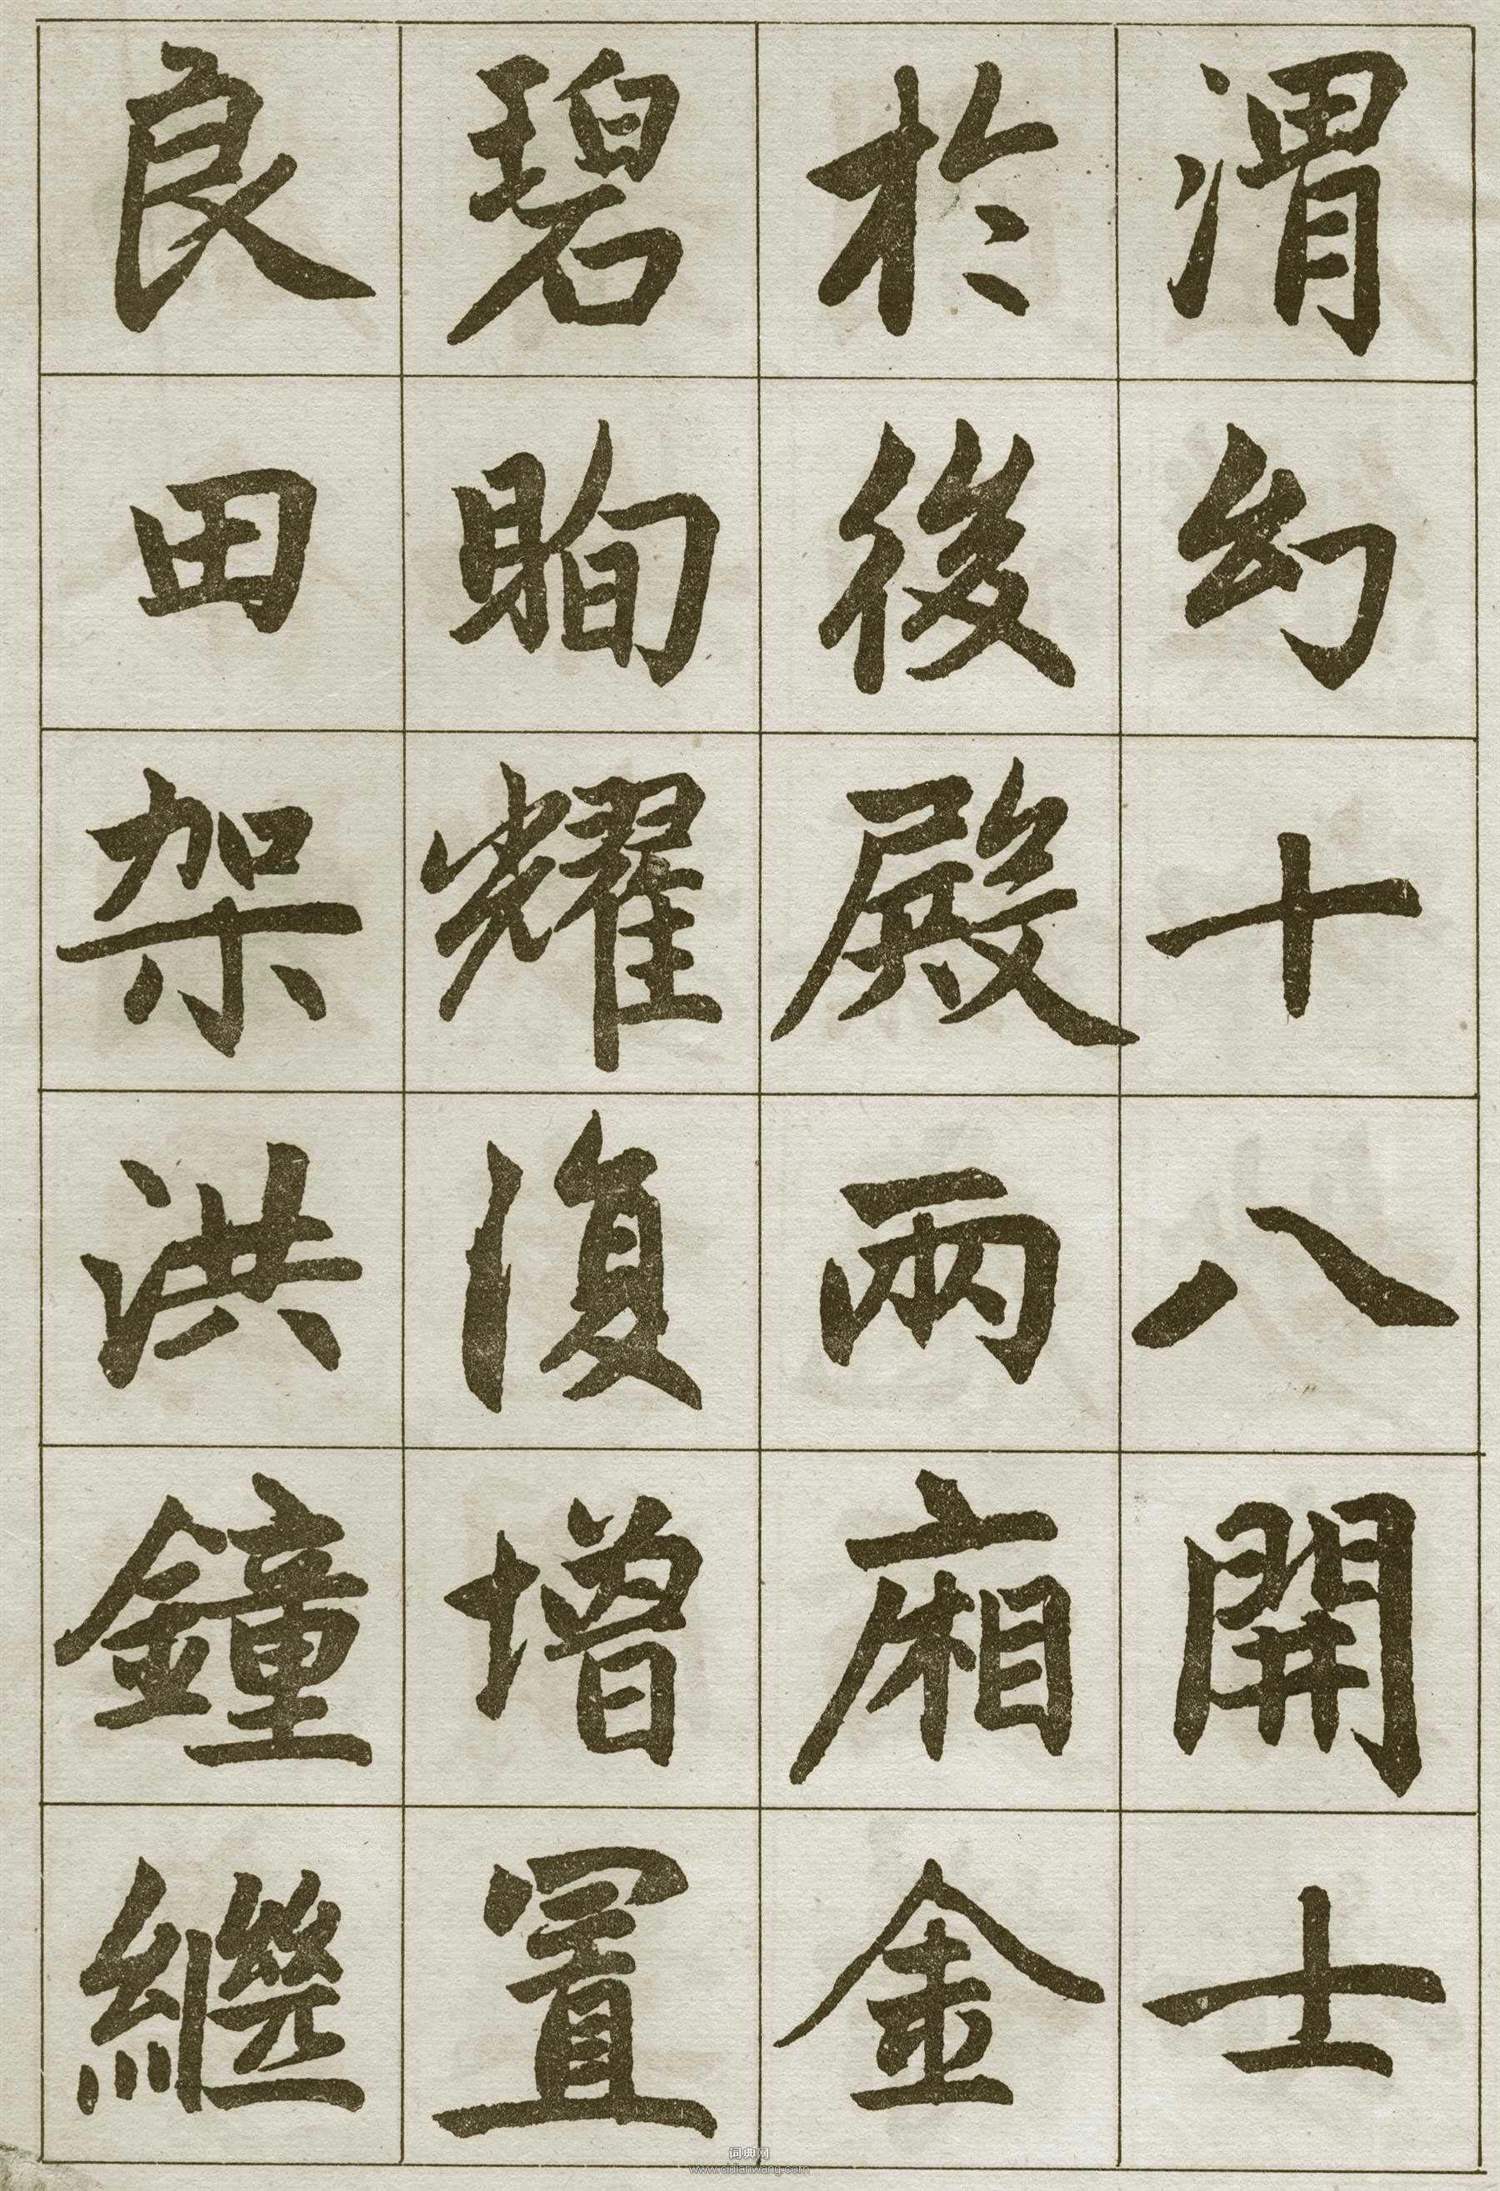 渭幻十八開士
於後殿兩廂金
碧眴耀復增置
良田架洪鐘繼
词典网
www.cidianwang.com